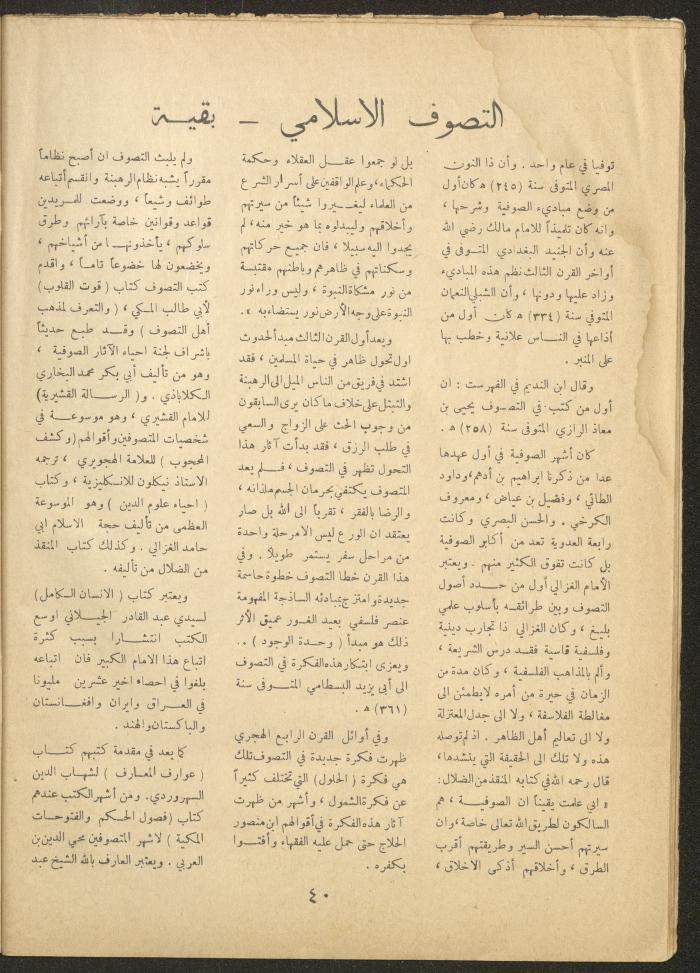 التصوف الاسلامي – بقية
توفيا في عام واحد . وأن ذا النون
المصري المتوفى سنة (٢٤٥) ه كان أول
من وضع مباديء الصوفية وشرحها ،
وانه كان تلميذاً للامام مالك رضي الله
عنه وأن الجنيد البغدادي المتوفى في
أواخر القرن الثالث نظم هذه المباديء
وزاد عليها ودونها ، وأن الشبلي النعمان
المتوفي سنة (٣٣٤) ه كان أول من
أذاعها في الناس علانية وخطب بها
على المنبر .
وقال ابن النديم في الفهرست : ان
أول من كتب في التصوف يحيى بن
معاذ الرازي المتوفى سنة (٢٥٨) ه .
كان أشهر الصوفية في أول عهدها
عدا من ذكرنا ابراهيم بن أدهم ، وداود
الطائي ، وفضيل بن عياض ، ومعروف
الكرخي . والحسن البصري وكانت
رابعة العدوية تعد من أكابر الصوفية
بل كانت تفوق الكثير منهم . ويعتبر
الأمام الغزالي أول من حدد أصول
التصوف وبين طرائقه بأسلوب علمي
بليغ ، وكان الغزالي ذا تجارب دينية
وفلسفية قاسية فقد درس الشريعة ،
وألم بالمذاهب الفلسفية ، وكان مدة من
الزمان في حيرة من أمره لا يطمئن الى
مغالطة الفلاسفة ، ولا الى جدل المعتزلة
ولا الى تعاليم أهل الظاهر . اذ لم توصله
هذه ولا تلك الى الحقيقة التي ينشدها ،
قال رحمه الله في كتابه المنقذ من الضلال :
« اني علمت يقيناً ان الصوفية ، هم
السالكون لطريق الله تعالى خاصة ، وان
سيرتهم أحسن السير وطريقتهم أقرب
الطرق ، وأخلاقهم أذكى الاخلاق ،
بل لو جمعوا عقل العقلاء وحكمة
الحكماء ، وعلم الواقفين على أسرار الشرع
من العلماء ليغيروا شيئاً من سيرتهم
وأخلاقهم وليبدلوه بما هو خير منه ، لم
يجدوا اليه سبيلا ، فان جميع حركاتهم
وسكناتهم في ظاهرهم وباطنهم مقتبسة
من نور مشكاة النبوة ، وليس وراء نور
النبوة على وجه الأرض نور يستضاء به » .
وبعد أول القرن الثالث مبدأ لحدوث
اول تحول ظاهر في حياة المسلمين ، فقد
اشتد في فريق من الناس الميل الى الرهبنة
والتبتل على خلاف ما كان يرى السابقون
من وجوب الحث على الزواج والسعي
في طلب الرزق ، فقد بدأت آثار هذا
التحول تظهر في التصوف ، فلم يعد
المتصوف يكتفي بحرمان الجسم ملذاته ،
والرضا بالفقر ، تقرباً الى الله بل صار
يعتقد ان الورع ليس الا مرحلة واحدة
من مراحل سفر يستمر طويلاً . وفي
هذا القرن خطا التصوف خطوة حاسمة
جديدة وامتزج بمبادئه الساذجة المفهومة
عنصر فلسفي بعيد الغور عميق الأثر
ذلك هو مبدأ ( وحدة الوجود ) ..
ويعزى ابتكار هذه الفكرة في التصوف
الى أبي يزيد البسطامي المتوفى سنة
(٣٦١) ه .
وفي أوائل القرن الرابع الهجري
ظهرت فكرة جديدة في التصوف تلك
هي فكرة ( الحلول ) التي تختلف كثيراً
عن فكرة الشمول ، وأشهر من ظهرت
آثار هذه الفكرة في أقوالهم ابن منصور
الحلاج حتى حمل عليه الفقهاء وأفتوا
بكفره .
ولم يلبث التصوف ان أصبح نظاماً
مقرراً يشبه نظام الرهبنة وانقسم أتباعه
طوائف وشيعاً ، ووضعت للمريدين
قواعد وقوانين خاصة بآرائهم وطرق
سلوكهم ، يأخذونها من أشياخهم ،
ويخضعون لها خضوعاً تاماً ، وأقدم
كتب التصوف كتاب ( قوت القلوب )
لأبي طالب المكي ، ( والتعرف لمذهب
أهل التصوف ) وقد طبع حديثاً
باشراف لجنة احياء الآثار الصوفية ،
وهو من تأليف أبي بكر محمد البخاري
الكلاباذي . و( الرسالة القشيرية )
للامام القشيري ، وهو موسوعة في
شخصيات المتصوفين وأقوالهم ( وكشف
المحجوب ) للعلامة الهجويري ، ترجمه
الاستاذ نيكلون للانكليزية ، وكتاب
( احياء علوم الدين ) وهو الموسوعة
العظمى من تأليف حجة الاسلام ابي
حامد الغزالي . وكذلك كتاب المنقذ
من الضلال من تأليفه .
ويعتبر كتاب ( الانسان الكامل )
لسيدي عبد القادر الجيلاني اوسع
الكتب انتشارا بسبب كثرة
اتباع هذا الامام الكبير فان اتباعه
بلغوا في احصاء اخير عشرين مليونا
في العراق وايران وافغانستان
والباكستان والهند .
كما يعد في مقدمة كتبهم كتاب
( عوارف المعارف ) لشهاب الدين
السهروردي . ومن أشهر الكتب عندهم
كتاب ( فصول الحكم والفتوحات
المكية ) لاشهر المتصوفين محي الدين بن
العربي . ويعتبر العارف بالله الشيخ عبد
٤٠